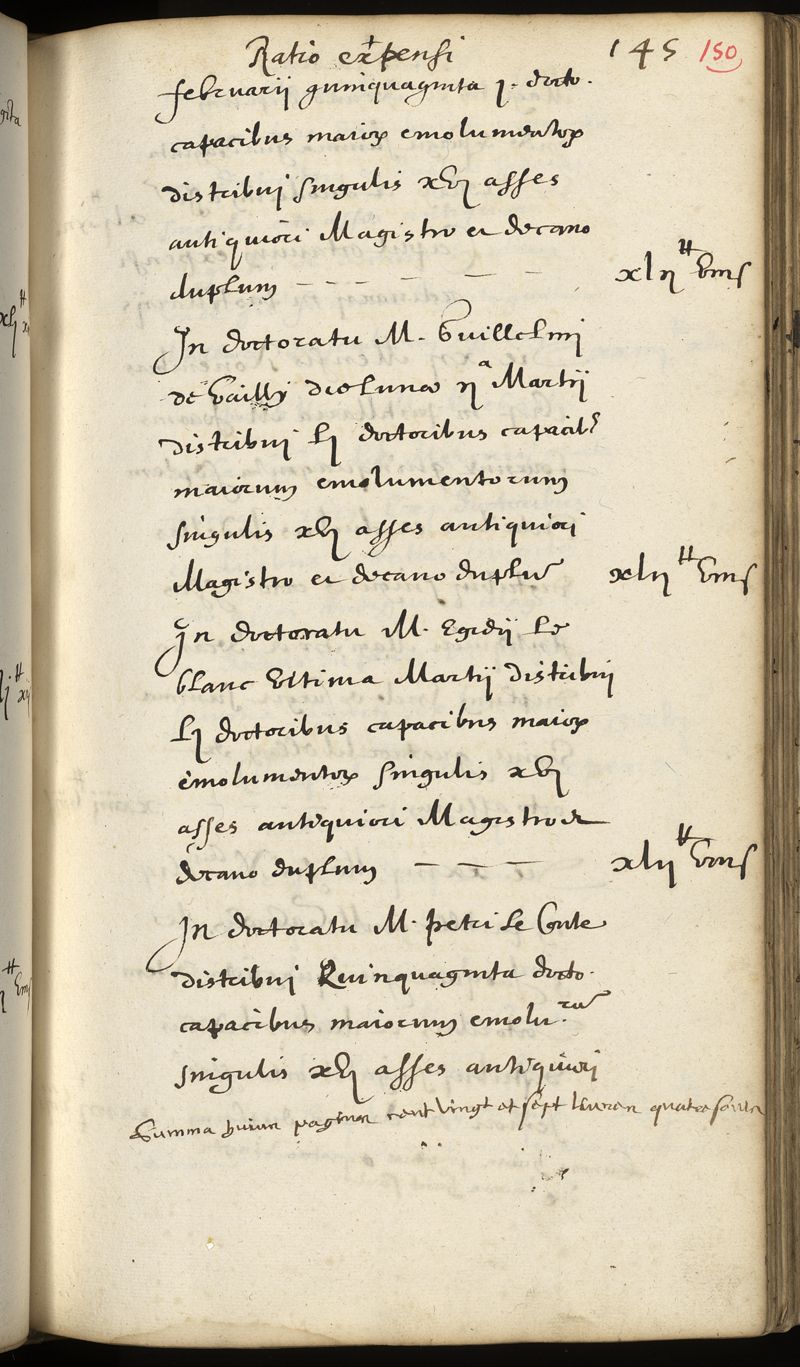 Ratio expensi 145 150
februarij quinquaginta j. docto.
capacibus maior emolumentor
distribuj singulis xvj asses
antiquiori Magistro et decano
duplum - - - - - - xlij ₶ viij s
In doctoratu M. Guillelmi
de Vailly die lunae ija Martij
distribuj Lj doctoribus capacib9
maiorum emolumentorum
singulis xvj asses antiquiori
Magistro et decano duplū xlij ₶ viij s
In doctoratu M. Egidij Le
blanc vltima Martij distribuj
Lj doctoribus capacibus maior
emolumentor singulis xvj
asses antiquiori Magistro et
decano duplum - - - xlij ₶ viij s
In doctoratu M. petri Le Conte
distribuj Quinquaginta docto.
capacibus maiorum emolu.rū
singulis xvj asses antiquiori
Summa huius paginae cent vingt et sept livres quatre soulz